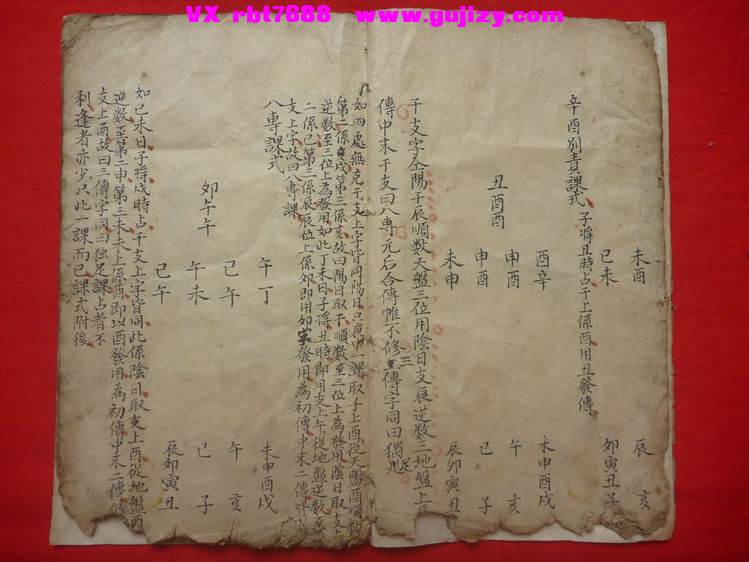 VX rbt7888 www.gujizy.com
未酉
己未
辰 亥
卯寅丑子
辛酉別責課式 子將丑時占干上係酉用丑發傳
丑酉酉
酉辛
申酉
申酉
未申
未申酉戌
午 亥
巳 子
辰卯寅丑
干支字全陽干辰順數天盤三位用陰日支辰逆數三地盤上
傳中末干支曰八專元后合傳帷不修三傳字同曰獨足
如四處無克干支上字皆同陽日只庚申一課取子上酉從天盤酉順數
第二係戌第三係亥故曰陽日取干順數至三位上為發用陰日取支上
逆數至三位上為發用如此丁未日子將丑時即用支上午從地盤逆數至
二係巳第三係辰辰位上係卯即用卯字發用為初傳中末二傳
支上字故曰八專課
八專課式
卯午午
午丁
巳午
午未
巳午
未申酉戌
午 亥
巳 子
辰卯寅丑
如己未日子將戌時占干支上字皆同此係陰日取支上酉從地盤酉
逆数至第二申第三未未上係酉即以酉發用為初傳中末二傳仍
支上酉故曰三傳字同曰独足課占者不
利逢者亦少只此一課而已課式附後